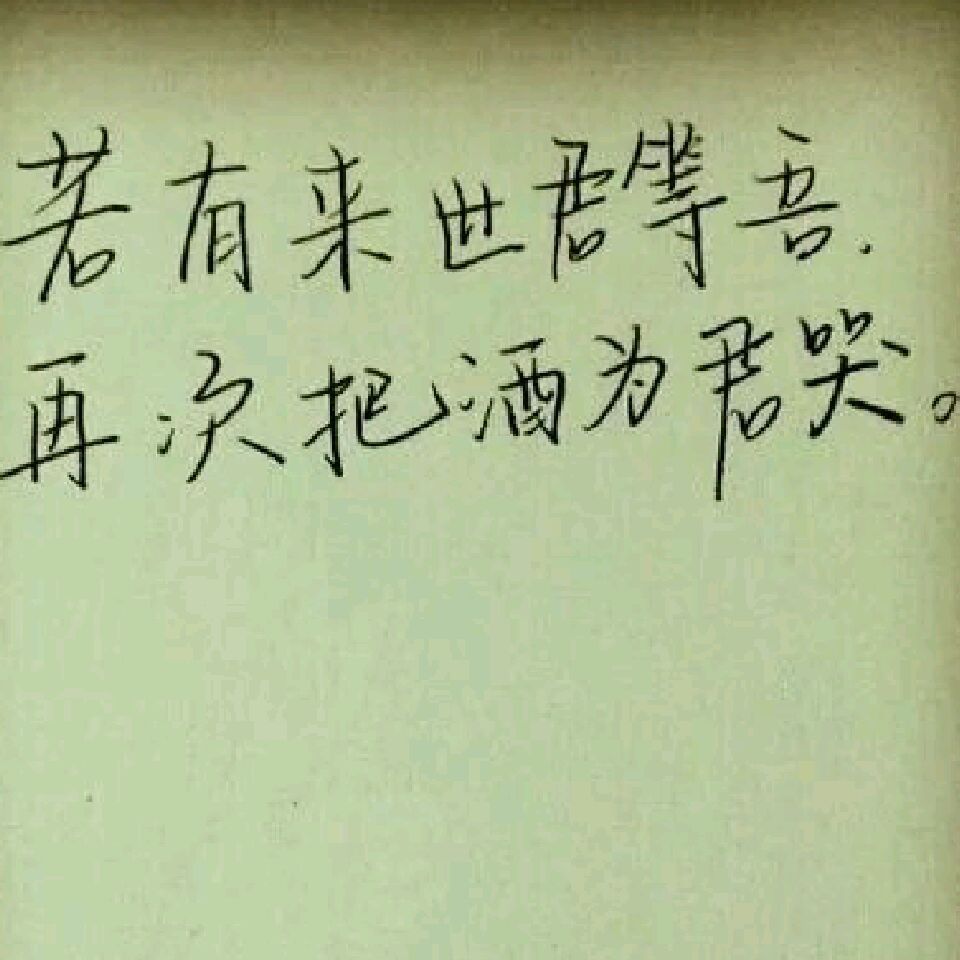 若有来世君等吾.
再次把酒为君哭。